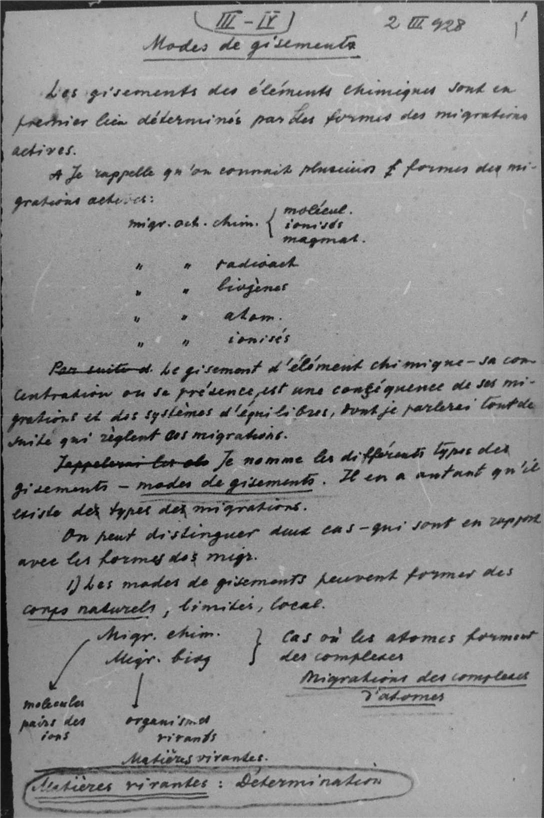 III – IV 2 III 928 1
Modes de gisements
Les gisements des éléments chimiques sont en
premier lieu déterminés par les formes des migrations
actives.
Je rappelle qu'on connait plusieurs formes des mi-
grations actives:
migr. act. chim. { molécul.
ionisés
magmat.
" " radioact
" " biogènes
" " atom.
" " ionisés
Par suite d Le gisement d'élément chimique – sa con-
centration ou sa présence, est une conséquence de ses mi-
grations et des systèmes d'équilibres, dont je parlerai tout de
suite qui règlent ces migrations.
Je nomme les différents types des
gisements – modes de gisements. Il en a autant qu'il
existe des types des migrations.
On peut distinguer deux cas – qui sont en rapport
avec les formes des migr.
1) Les modes de gisements peuvent former des
corps naturels, limités, local.
Migr. chim. } Cas où les atomes forment
Migr. biog } des complexes
Migrations des complexes
d'atomes
molecules
pairs des
ions
organismes
vivants
Matières vivantes.
Matières vivantes : Détermination